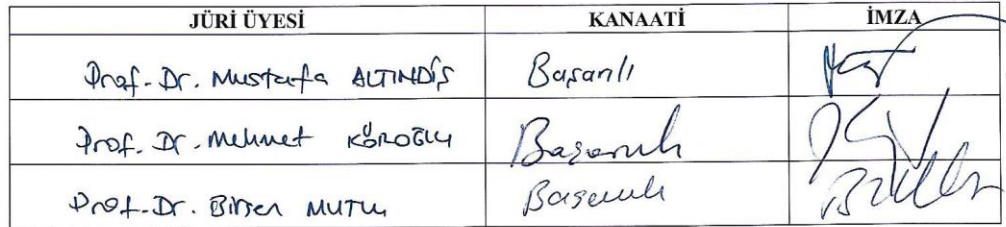 JÜRİ ÜYESİ KANAATİ İMZA
Prof. Dr. Mustafa ALTINDİŞ Başarılı
Prof. Dr. Mehmet KÖROĞLU Başarılı
Prof. Dr. Birsen MUTLU Başarılı